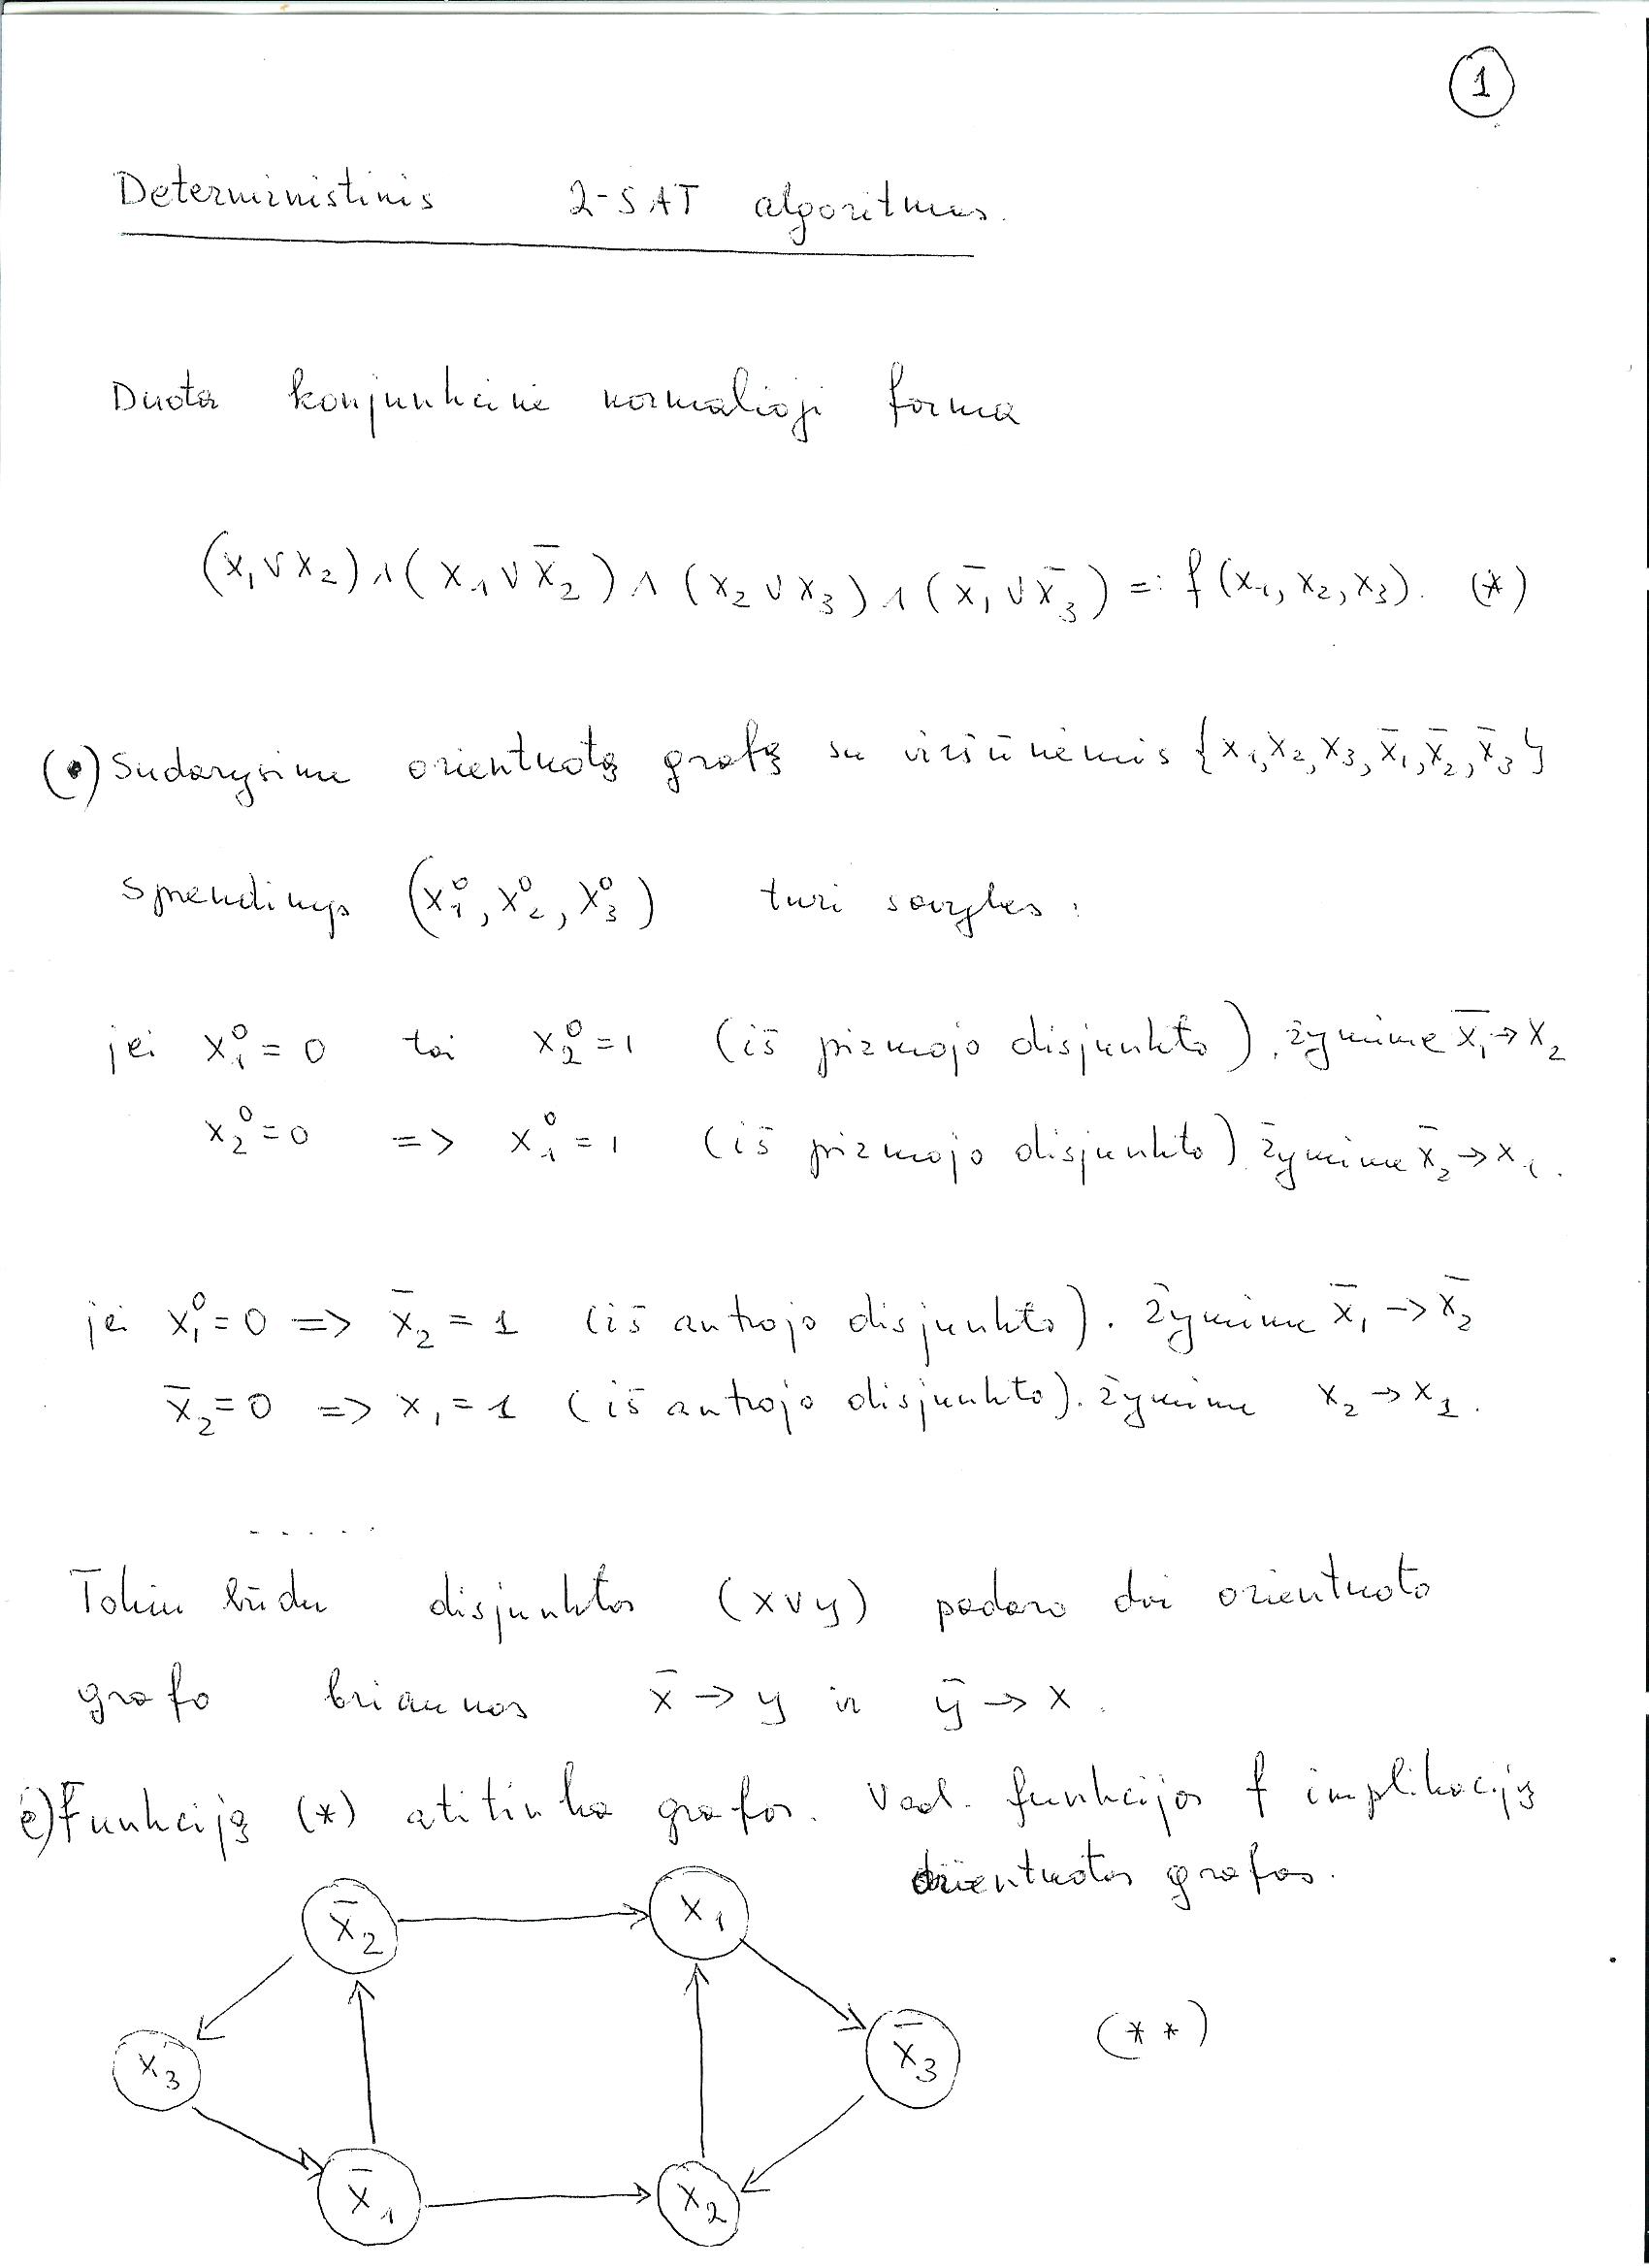 1
Deterministinis 2-SAT algoritmas.
Duota konjunkcinė normalioji forma
(x₁ ∨ x₂) ∧ (x₁ ∨ x̄₂) ∧ (x₂ ∨ x₃) ∧ (x̄₁ ∨ x̄₃) =: f(x₁, x₂, x₃). (*)
(•) Sudarysime orientuotą grafą su viršūnėmis {x₁, x₂, x₃, x̄₁, x̄₂, x̄₃}
Sprendinys (x₁⁰, x₂⁰, x₃⁰) turi savybes:
jei x₁⁰ = 0 tai x₂⁰ = 1 (iš pirmojo disjunkto), žymime x̄₁ → x₂
x₂⁰ = 0 => x₁⁰ = 1 (iš pirmojo disjunkto) žymime x̄₂ → x₁.
jei x₁⁰ = 0 => x̄₂ = 1 (iš antrojo disjunkto). Žymime x̄₁ → x̄₂
x̄₂ = 0 => x₁ = 1 (iš antrojo disjunkto). žymime x₂ → x₁.
.....
Tokiu būdu disjunktas (x ∨ y) padaro dvi orientuoto
grafo briaunas x̄ → y ir ȳ → x.
•) Funkciją (*) atitinka grafas. Vad. funkcijos f implikacijų
orientuotas grafas.
x̄₂ x₁
x₃ x̄₃ (**)
x̄₁ x₂